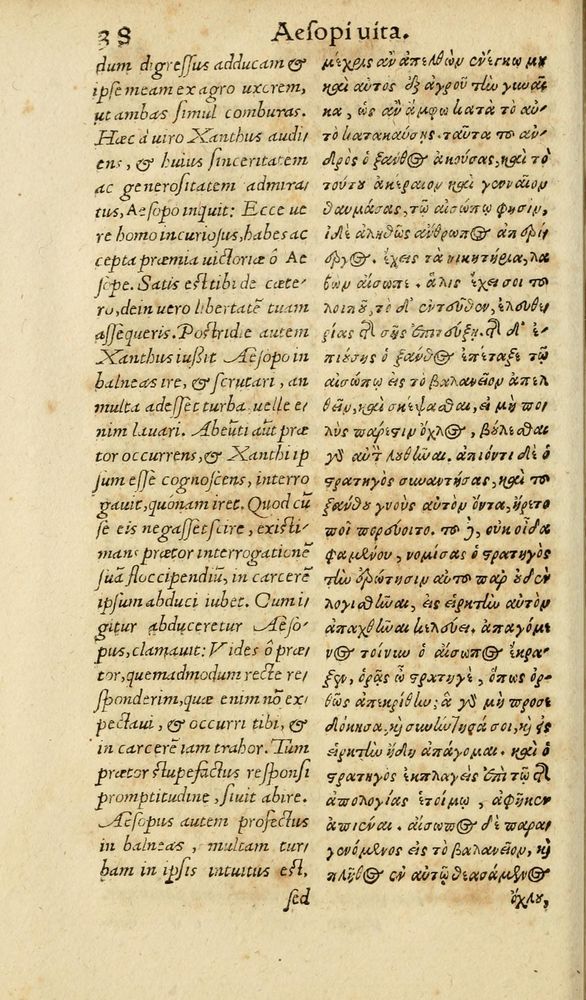 38
Aesopi uita.
dum digressus adducam &
ipse meam ex agro uxcrem,
ut ambas simul comburas.
Hæc à uiro Xanthus audi-
ens, & huius sinceritatem
ac generositatem admira-
tus, Aesopo inquit: Ecce ue
re homo incuriosus, habes ac
cepta præmia uictoriæ ô Ae
sope. Satis est tibi de cæte-
ro, dein uero libertatē tuam
assequeris. Postridie autem
Xanthus iußit Aesopo in
balneas ire, & scrutari, an
multa adesset turba, uelle e-
nim lauari. Abeūti aūt præ
tor occurrens, & Xanthi ip
sum esse cognoscens, interro
gauit, quonam iret. Quod cū
se eis negasset scire, existi-
mans prætor interrogationē
suā floccipendiū, in carcerē
ipsum abduci iubet. Cum i-
gitur abduceretur Aeso-
pus, clamauit: Vides ô præ-
tor, quemadmodum recte re-
sponderim, quæ enim nō ex-
pectaui, & occurri tibi, &
in carcerē iam trahor. Tum
prætor stupefactus responsi
promptitudine, siuit abire.
Aesopus autem profectus
in balneas, multam tur-
bam in ipsis intuitus est,
sed
μέχρις ἂν ἀπελθὼν ἐνέγκω μὲ
καὶ αὐτὸς ἐξ ἀγροῦ τὴν γυναῖ-
κα, ὡς ἂν ἄμφω κατὰ τὸ αὐ-
τὸ κατακαύσῃς. ταῦτα τοῦ ἀν-
δρὸς ὁ ξάνθος ἀκούσας, καὶ τὸ
τούτου ἀκέραιον καὶ γενναῖον
θαυμάσας, τῷ αἰσώπῳ φησίν,
ἰδὲ ἀληθῶς ἄνθρωπος ἀπερί-
εργος. ἔχεις τὰ νικητήρια, λα
βὼν αἴσωπε. ἅλις ἔχει σοι τοῦ
λοιποῦ, τὸ δ' ἐντεῦθεν, ἐλευθε-
ρίας τῆς σῆς ἐπιτεύξῃ. τῇ δ' ἐ-
πιούσῃ ὁ ξάνθος ἐπέταξε τῷ
αἰσώπῳ εἰς τὸ βαλανεῖον ἀπελ
θεῖν, καὶ σκέψασθαι, εἰ μὴ πο-
λὺς πάρεστιν ὄχλος, βούλεσθαι
γὰρ αὐτὸν λουθῆναι. ἀπιόντι δὲ ὁ
στρατηγὸς συναντήσας, καὶ τοῦ
ξάνθου γνοὺς αὐτὸν ὄντα, ἤρετο
ποῖ πορεύοιτο. τοῦ δὲ, οὐκ οἶδα
φαμένου, νομίσας ὁ στρατηγὸς
τὴν ἐρώτησιν αὐτοῦ παρ' οὐδὲν
λογισθῆναι, εἰς εἱρκτὴν αὐτὸν
ἀπαχθῆναι κελεύει. ἀπαγόμε
νος τοίνυν ὁ αἴσωπος ἔκρα-
ξεν, ὁρᾷς ὦ στρατηγὲ, ὅπως ὀρ-
θῶς ἀπεκρίθην; ἃ γὰρ μὴ προσε
δόκησα, καὶ συνήντησά σοι, καὶ εἰς
εἱρκτὴν ἤδη ἀπάγομαι. καὶ ὁ
στρατηγὸς ἐκπλαγεὶς ἐπὶ τῷ τῆς
ἀπολογίας ἑτοίμῳ, ἀφῆκεν
ἀπιέναι. αἴσωπος δὲ παρα-
γενόμενος εἰς τὸ βαλανεῖον, καὶ
πλῆθος ἐν αὐτῷ θεασάμενος
ὄχλου,